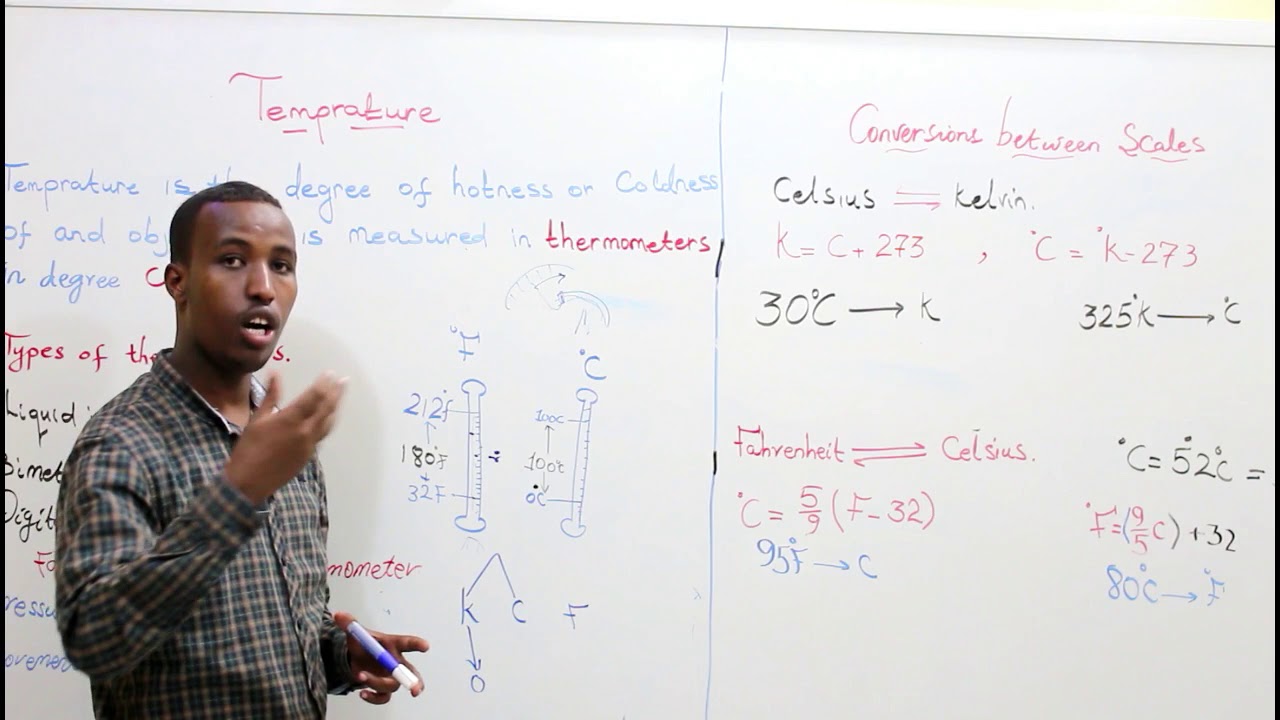 Temprature
Temprature is the degree of hotness or Coldness
of and obj is measured in thermometers
in degree C
Types of the s.
Liquid i
Bimet
Digit
Fa mometer
ressu
ovemen
°F
212°f
180°F
32F
°C
100c
100c
0c
K C F
0
Conversions between Scales
Celsius ⇌ kelvin.
K = C + 273 , °C = °K - 273
30°C → K 325°K → °C
Fahrenheit ⇌ Celsius. °C = 52°C =
°C = 5/9 (F - 32) °F = (9/5 C) + 32
95°F → C 80°C → °F